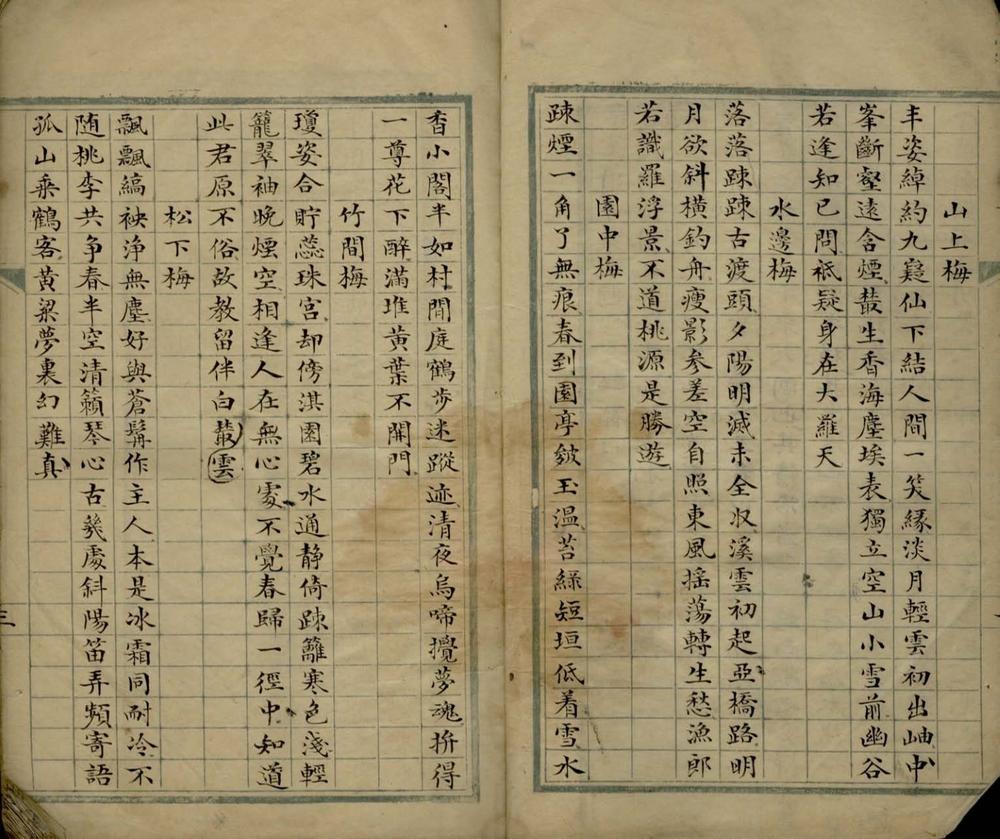 山上梅
丰姿綽約九嶷仙下結人間一笑緣淡月輕雲初出岫中
峯斷壑遠含煙叢生香海塵埃表獨立空山小雪前幽谷
若逢知己問祇疑身在大羅天
水邊梅
落落踈踈古渡頭夕陽明滅未全収溪雲初起亞橋路明
月欲斜橫釣舟瘦影參差空自照東風摇蕩轉生愁漁郎
若識羅浮景不道桃源是勝遊
園中梅
踈煙一角了無痕春到園亭皴玉温苔綠短垣低着雪水
香小閣半如村間庭鶴步迷蹤迹清夜烏啼攪夢魂拚得
一尊花下醉滿堆黄葉不開門
竹間梅
瓊姿合貯蕊珠宫却傍淇園碧水通静倚踈籬寒色淺輕
籠翠袖晚煙空相逢人在無心處不覺春歸一徑中知道
此君原不俗故教留伴白叢雲
松下梅
飄飄縞袂浄無塵好與蒼髯作主人本是冰霜同耐冷不
随桃李共争春半空清籟琴心古幾處斜陽笛弄頻寄語
孤山乘鶴客黄粱夢裏幻難真
三